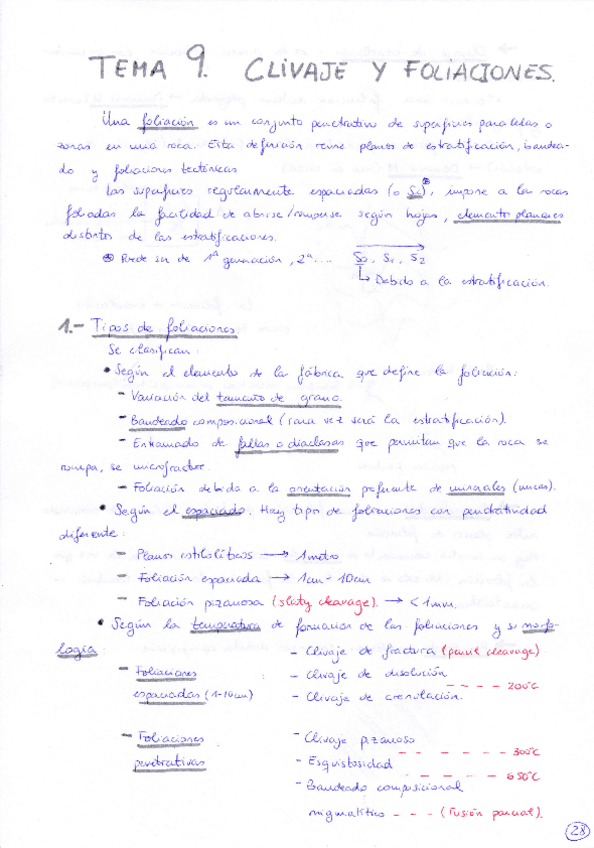 TEMA 9. CLIVAJE Y FOLIACIONES.
Una foliación es un conjunto penetrativo de superficies paralelas o
zonas en una roca. Esta definición reúne planos de estratificación, bandea-
do y foliaciones tectónicas
Las superficies regularmente espaciadas (o S₀)⊛, impone a las rocas
foliadas la facilidad de abrirse/romperse según hojas, elementos planares
distintos de las estratificaciones.
⊛ Puede ser de 1ª generación, 2ª .... S₀, S₁, S₂
↳ Debido a la estratificación.
1.- Tipos de foliaciones
Se clasifican:
• Según el elemento de la fábrica que define la foliación:
- Variación del tamaño de grano.
- Bandeado composicional (rara vez será la estratificación).
- Entramado de fallas o diaclasas que permitan que la roca se
rompa, se microfracture.
- Foliación debida a la orientación preferente de minerales (micas).
• Según el espaciado. Hay tipos de foliaciones con penetratividad
diferente:
- Planos estilolíticos → 1 metro
- Foliación espaciada → 1cm - 10cm
- Foliación pizarrosa (slaty cleavage). → < 1mm.
• Según la temperatura de formación de las foliaciones y su morfo-
logía:
- Foliaciones
espaciadas (1-10cm)
- Clivaje de fractura (pencil cleavage)
- Clivaje de disolución
- - - - 200°C
- Clivaje de crenulación.
- Foliaciones
penetrativas
- Clivaje pizarroso
- - - - - - 300°C
- Esquistosidad
- - - - - - 650°C
- Bandeado composicional
migmatítico - - - (Fusión parcial).
28